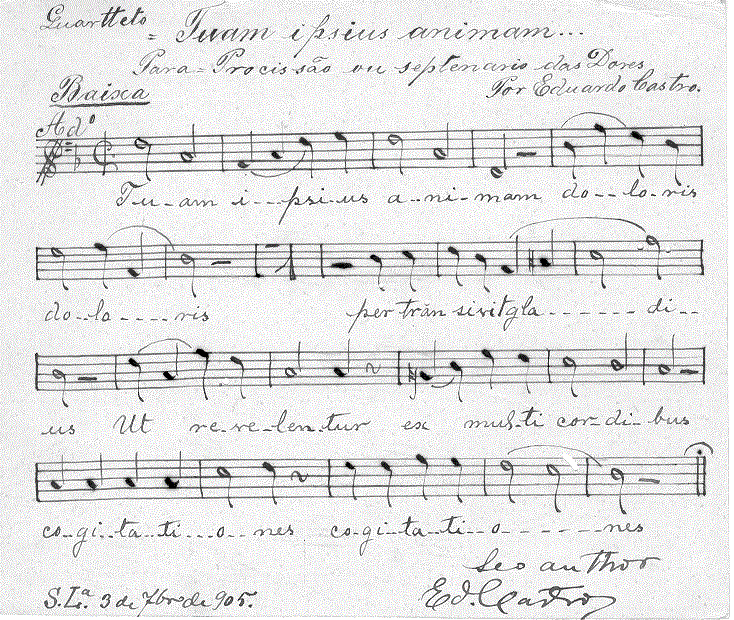 Quartteto = Tuam ipsius animam...
Para = Procissão ou septenario das Dores
Baixa Por Eduardo Castro.
Adº
Tu-am i---psi-us a-ni-mam do--lo-ris
do--lo----ris per trãn sivit gla------di--
us Ut re-ve-len-tur ex mul-ti cor-di-bus
co-gi-ta-ti--o--nes co-gi-ta-ti-o------nes
Seo author
S. L.ª 3 de 7bro de 905. Ed. Castro